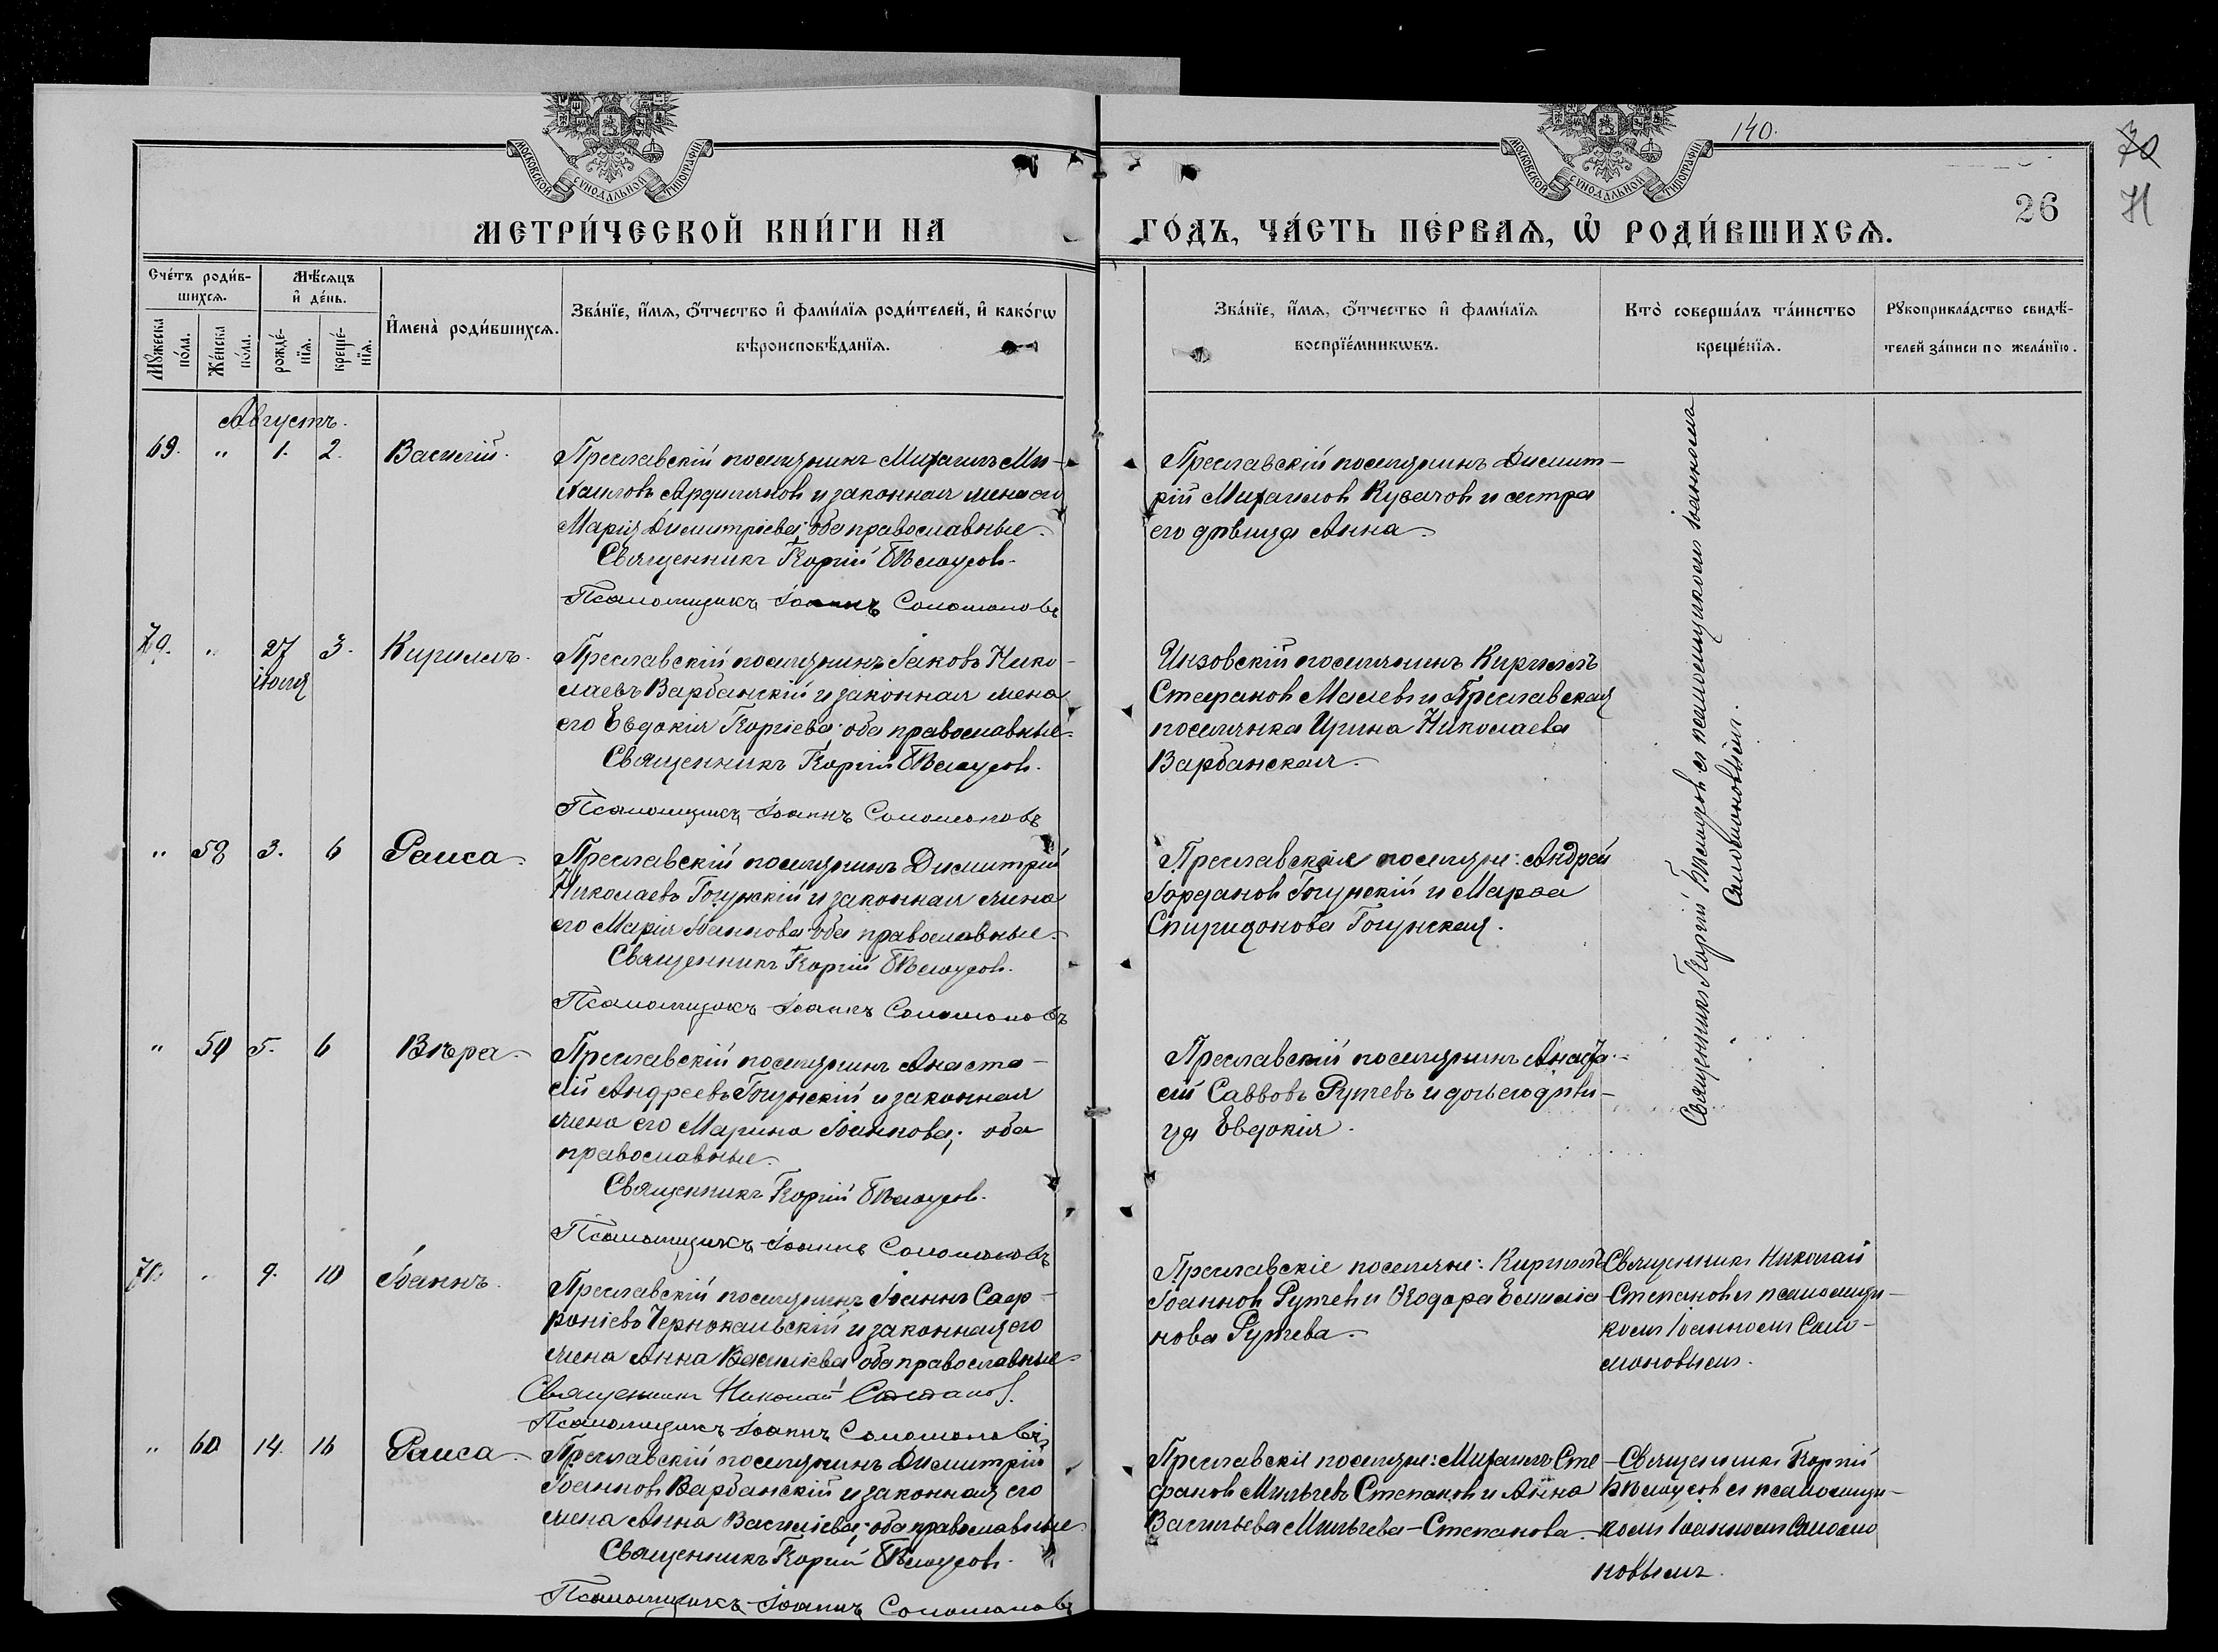 140.
70
71
26
МОСКОВСКОЙ СѴНОДАЛЬНОЙ ТИПОГРАФІИ
МОСКОВСКОЙ СѴНОДАЛЬНОЙ ТИПОГРАФІИ
МЕТРИ́ЧЕСКОЙ КНИ́ГИ НА ГО́ДЪ, ЧА́СТЬ ПЕ́РВАѦ, Ѡ҆ РОДИ́ВШИХСѦ.
Сче́тъ роди́в-
шихсѧ.
Мꙋ́жеска по́ла.
Же́нска по́ла.
Мѣ́сѧцъ
и҆ де́нь.
рожде́-
нїѧ.
креще́-
нїѧ.
И҆мена̀ роди́вшихсѧ.
Зва́нїе, и҆́мѧ, ѻ҆́тчество и҆ фами́лїѧ роди́телей, и҆ како́гѡ
вѣроисповѣ́данїѧ.
Зва́нїе, и҆́мѧ, ѻ҆́тчество и҆ фами́лїѧ
воспрїе́мникѡвъ.
Кто̀ соверша́лъ та́инство
креще́нїѧ.
Рꙋкоприкла́дство свидѣ́-
телей за́писи по жела́нїю.
Августъ.
69. " 1. 2. Василій.
Преславскій поселянинъ Михаилъ Ми-
хаиловъ Ардиляновъ и законная жена его
Марія Димитріева; оба православные.
Священникъ Георгій Бѣлоусовъ.
Псаломщикъ Іоаннъ Соломоновъ
Преславскій поселянинъ Димит-
рій Михаиловъ Кусаковъ и сестра
его дѣвица Анна.
Священникъ Георгій Бѣлоусовъ съ псаломщикомъ Іоанномъ
Соломоновымъ.
70. " 27 іюля 3. Кириллъ.
Преславскій поселянинъ Іаковъ Нико-
лаевъ Варбанскій и законная жена
его Евдокія Георгіева; оба православные.
Священникъ Георгій Бѣлоусовъ.
Псаломщикъ Іоаннъ Соломоновъ
Инзовскій поселянинъ Кириллъ
Стефановъ Малевъ и Преславская
поселянка Ирина Николаева
Варбанская.
" 58 3. 6 Раиса.
Преславскій поселянинъ Димитрій
Николаевъ Гогунскій и законная жена
его Марія Іоаннова; оба православные.
Священникъ Георгій Бѣлоусовъ.
Псаломщикъ Іоаннъ Соломоновъ
Преславскіе поселяне: Андрей
Іордановъ Гогунскій и Марѳа
Спиридонова Гогунская.
" 59 5. 6 Вѣра.
Преславскій поселянинъ Анаста-
сій Андреевъ Гогунскій и законная
жена его Марина Іоаннова; оба
православные.
Священникъ Георгій Бѣлоусовъ.
Псаломщикъ Іоаннъ Соломоновъ
Преславскій поселянинъ Анаста-
сій Саввовъ Рутевъ и дочь его дѣви-
ца Евдокія.
71. " 9. 10 Іоаннъ.
Преславскій поселянинъ Іоаннъ Саф-
роніевъ Черноканевскій и законная его
жена Анна Василіева; оба православные
Священникъ Николай Степановъ.
Псаломщикъ Іоаннъ Соломоновъ
Преславскіе поселяне: Кириллъ
Іоанновъ Рутевъ и Ѳеодора Емилія-
нова Рутева.
Священникъ Николай
Степановъ съ псаломщи-
комъ Іоанномъ Соло-
моновымъ.
" 60 14. 16 Раиса.
Преславскій поселянинъ Димитрій
Іоанновъ Варбанскій и законная его
жена Анна Василіева; оба православные
Священникъ Георгій Бѣлоусовъ.
Псаломщикъ Іоаннъ Соломоновъ
Преславскіе поселяне: Михаилъ Сте-
фановъ Мильчевъ Степановъ и Анна
Васильева Мильчева-Степанова
Священникъ Георгій
Бѣлоусовъ съ псаломщи-
комъ Іоанномъ Соломо
новымъ.